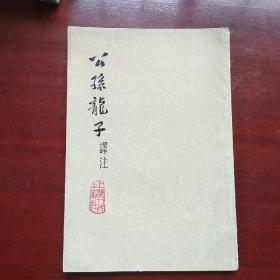 公孫龍子
譯注